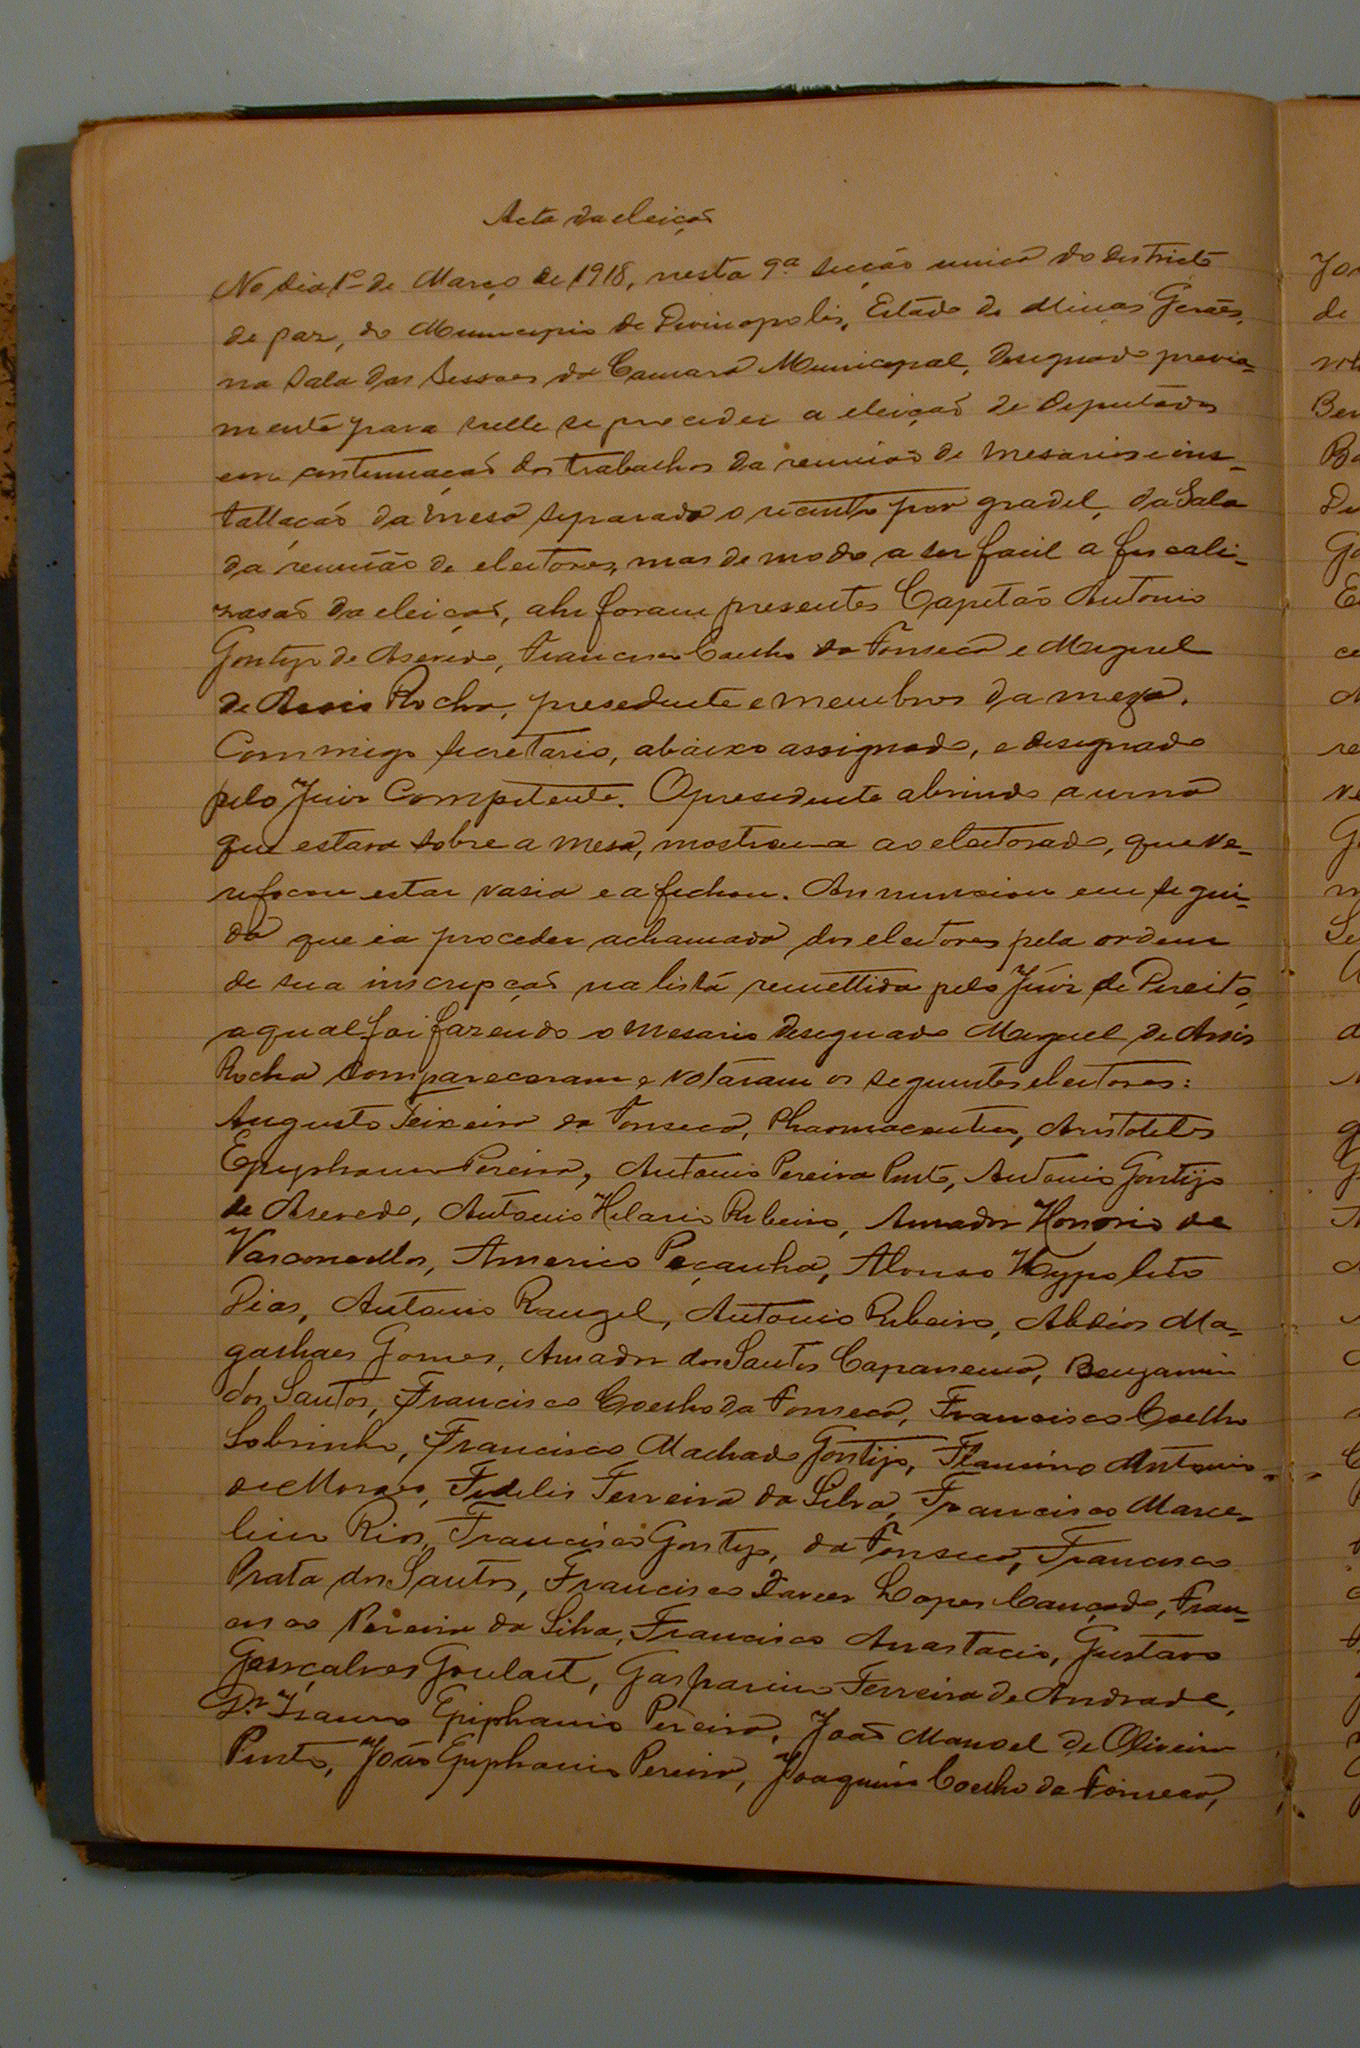 Acta da eleição
No dia 1º de Março de 1918, nesta 9ª secção unica do districto
de paz, do Municipio de Divinopolis, Estado de Minas Geraes,
na Sala das Sessoes da Camara Municipal, designado previa-
mente para nelle se proceder a eleição de deputados
em continuação dos trabalhos da reunião de mesarios e ins-
tallação da mesa separado o recinto por gradel, da Sala
da reunião de eleitores, mas de modo a ser facil a fiscali-
zasão da eleição, ahi foram presentes Capitão Antonio
Gontijo de Asevedo, Francisco Coelho da Fonseca e Miguel
de Assis Rocha, presedente e membros da meza.
Commigo secretario, abaixo assignado, e designado
pelo Juiz Competente. O presedente abrindo a urna
que estava sobre a mesa, mostrou-a ao eleitorado, que ve-
rificou estar vasia e a fechou. Annunciou em segui-
da que ia proceder a chamada dos eleitores pela ordem
de sua inscripção na lista remettida pelo Juiz de Direito,
a qual foi fazendo o mesario designado Miguel de Assis
Rocha compareceram e votaram os seguintes eleitores:
Augusto Teixeira da Fonseca, Pharmaceutico, Aristoteles
Epiphanio Pereira, Antonio Pereira Pinto, Antonio Gontijo
de Asevedo, Antonio Hilario Ribeiro, Amador Honorio de
Vasconcellos, Americo Peçanha, Alonso Hyppolito
Dias, Antonio Rangel, Antonio Ribeiro, Abdias Ma-
galhaes Gomes, Amador dos Santos Capanema, Benjamin
dos Santos, Francisco Coelho da Fonseca, Francisco Coelho
Sobrinho, Francisco Machado Gontijo, Flausino Antonio
de Moraes, Fidelis Ferreira da Silva, Francisco Marce-
lino Rios, Francisco Gontijo, da Fonseca, Francisco
Prata dos Santos, Francisco Xavier Lopes Cançado, Fran-
cisco Pereira da Silva, Francisco Anastacio, Gustavo
Gonçalves Goulart, Gasparino Ferreira de Andrade,
Dr Epiphanio Pereira, João Manoel de Oliveira
Pinto, João Epiphanio Pereira, Joaquim Coelho da Fonseca,